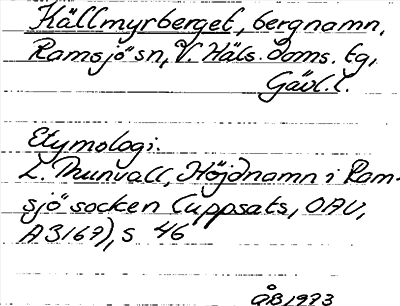 Källmyrberget, bergnamn,
Ramsjö sn, V. Häls. doms. tg,
Gävl. l.
Etymologi:
L. Thunvall, Höjdnamn i Ram-
sjö socken (uppsats, OAU,
A3167), s 46
ÅB 1993